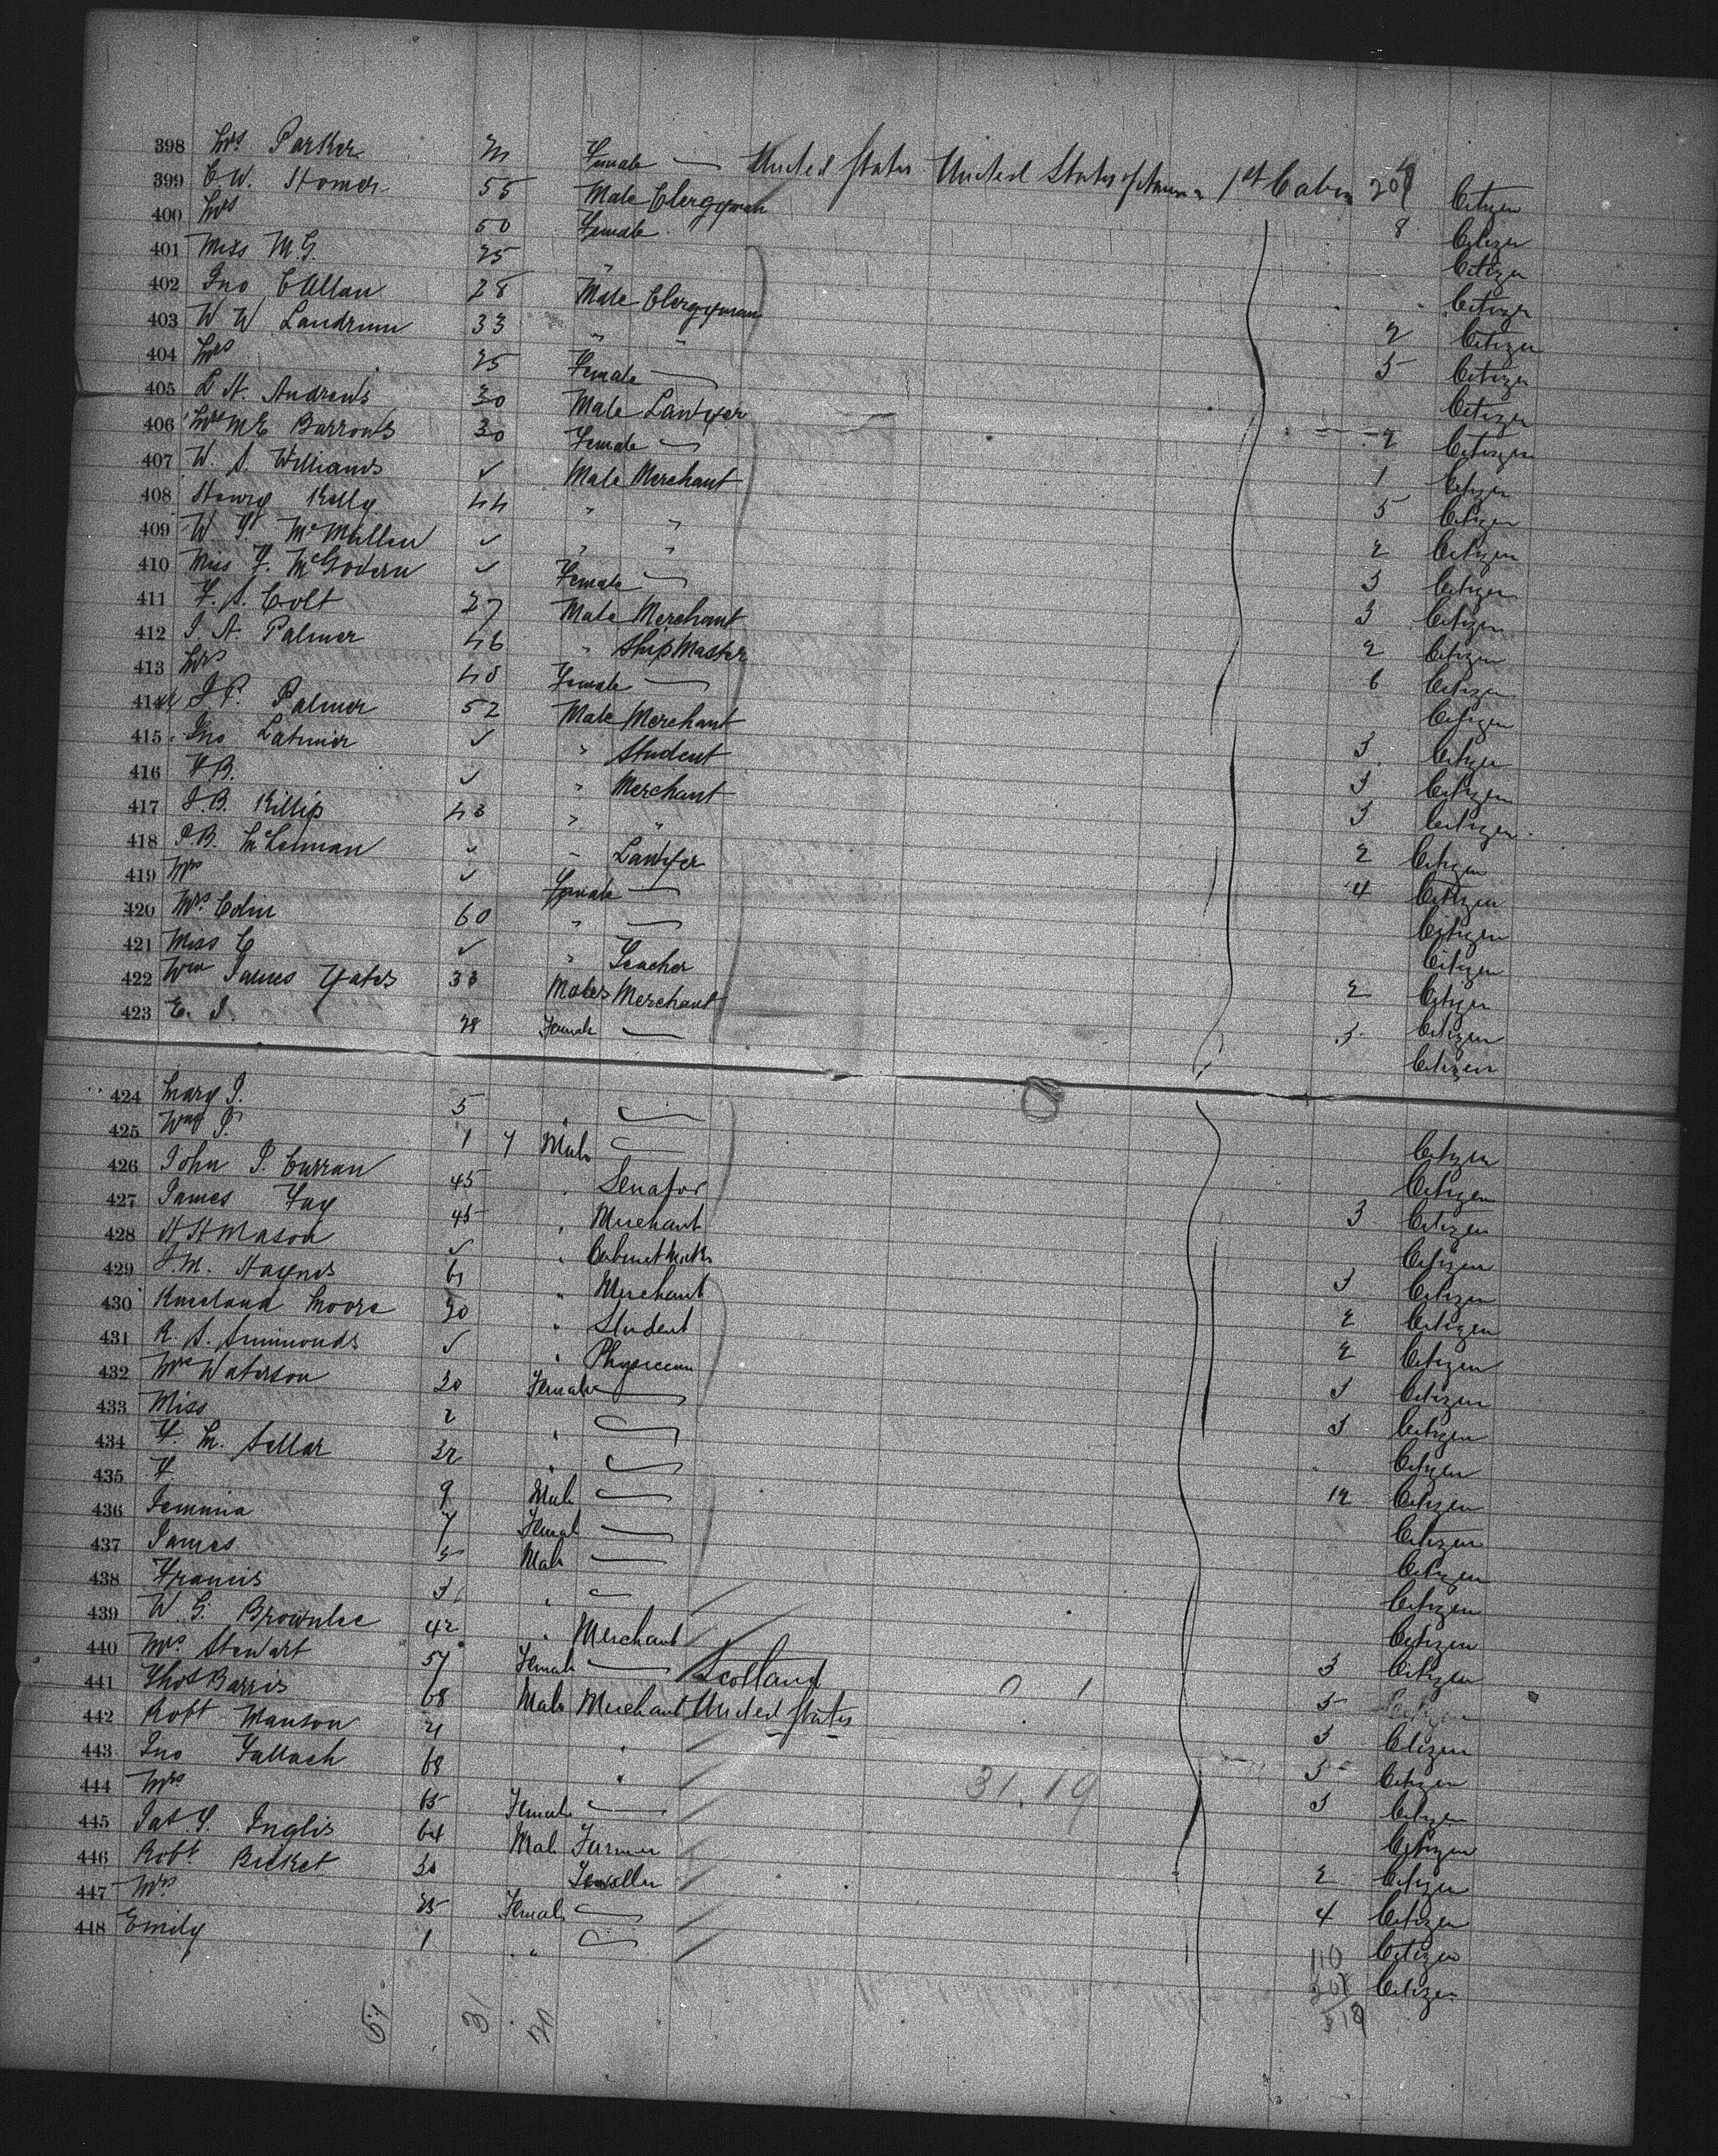 398 Mrs Parker Female United States United States of America 1st Cabin 20 Citizen
399 C W. Homer 55 Male Clergyman 8 Citizen
400 Mrs 50 Female Citizen
401 Miss M.G. 25 " Citizen
402 Jno C Allan 28 Male Clergyman 2 Citizen
403 W W Landrum 33 " " 5 Citizen
404 Mrs 25 Female Citizen
405 L N. Andrews 30 Male Lawyer 2 Citizen
406 Mrs M E Barrows 30 Female 1 Citizen
407 W. S. Williams ✓ Male Merchant 5 Citizen
408 Henry Kelly 44 " " 2 Citizen
409 W. McMullen ✓ " " 3 Citizen
410 Miss F. McGovern ✓ Female 3 Citizen
411 F. S. Colt 27 Male Merchant 2 Citizen
412 J. A. Palmer 46 " Ship Master 6 Citizen
413 Mrs 48 Female Citizen
414 J. P. Palmer 52 Male Merchant 3 Citizen
415 Jno Latimer ✓ " Student 3 Citizen
416 F B. ✓ " Merchant 3 Citizen
417 J. B. Killip 43 " " 2 Citizen
418 P. B. McLennan ✓ " Lawyer 4 Citizen
419 Mrs ✓ Female Citizen
420 Mrs Colin 60 " Citizen
421 Miss C ✓ " Teacher 2 Citizen
422 Wm James Yates 33 Males Merchant 3 Citizen
423 E. J. 28 Female Citizen
424 Mary J. 5 " Citizen
425 Wm J. 1 7 Male Citizen
426 John P. Curran 45 " Senator 3 Citizen
427 James Fay 45 " Merchant Citizen
428 H H Mason ✓ " Cabinet Maker 3 Citizen
429 J. M. Haynes 61 " Merchant 2 Citizen
430 Kneeland Moore 20 " Student 2 Citizen
431 R. S. Simmonds ✓ " Physician 3 Citizen
432 Mrs Waterson 30 Female 3 Citizen
433 Miss 2 " Citizen
434 F. M. Sellar 32 " 12 Citizen
435 F. 9 Male Citizen
436 Jemima 7 Female Citizen
437 James 5 Male Citizen
438 Francis 3 " Citizen
439 W. G. Brownlee 42 " Merchant 3 Citizen
440 Mrs Stewart 57 Female Scotland 0 1 5
441 Thos Barris 68 Male Merchant United States 3 Citizen
442 Robt Manson 21 " 5 Citizen
443 Jno Tallach 68 " 3 Citizen
444 Mrs 65 Female 31.19 Citizen
445 Jas. S. Inglis 64 Male Farmer 2 Citizen
446 Robt Bicket 30 Jeweller 4 Citizen
447 Mrs 25 Female Citizen
448 Emily 1 " Citizen
110
208
318
51 31 20